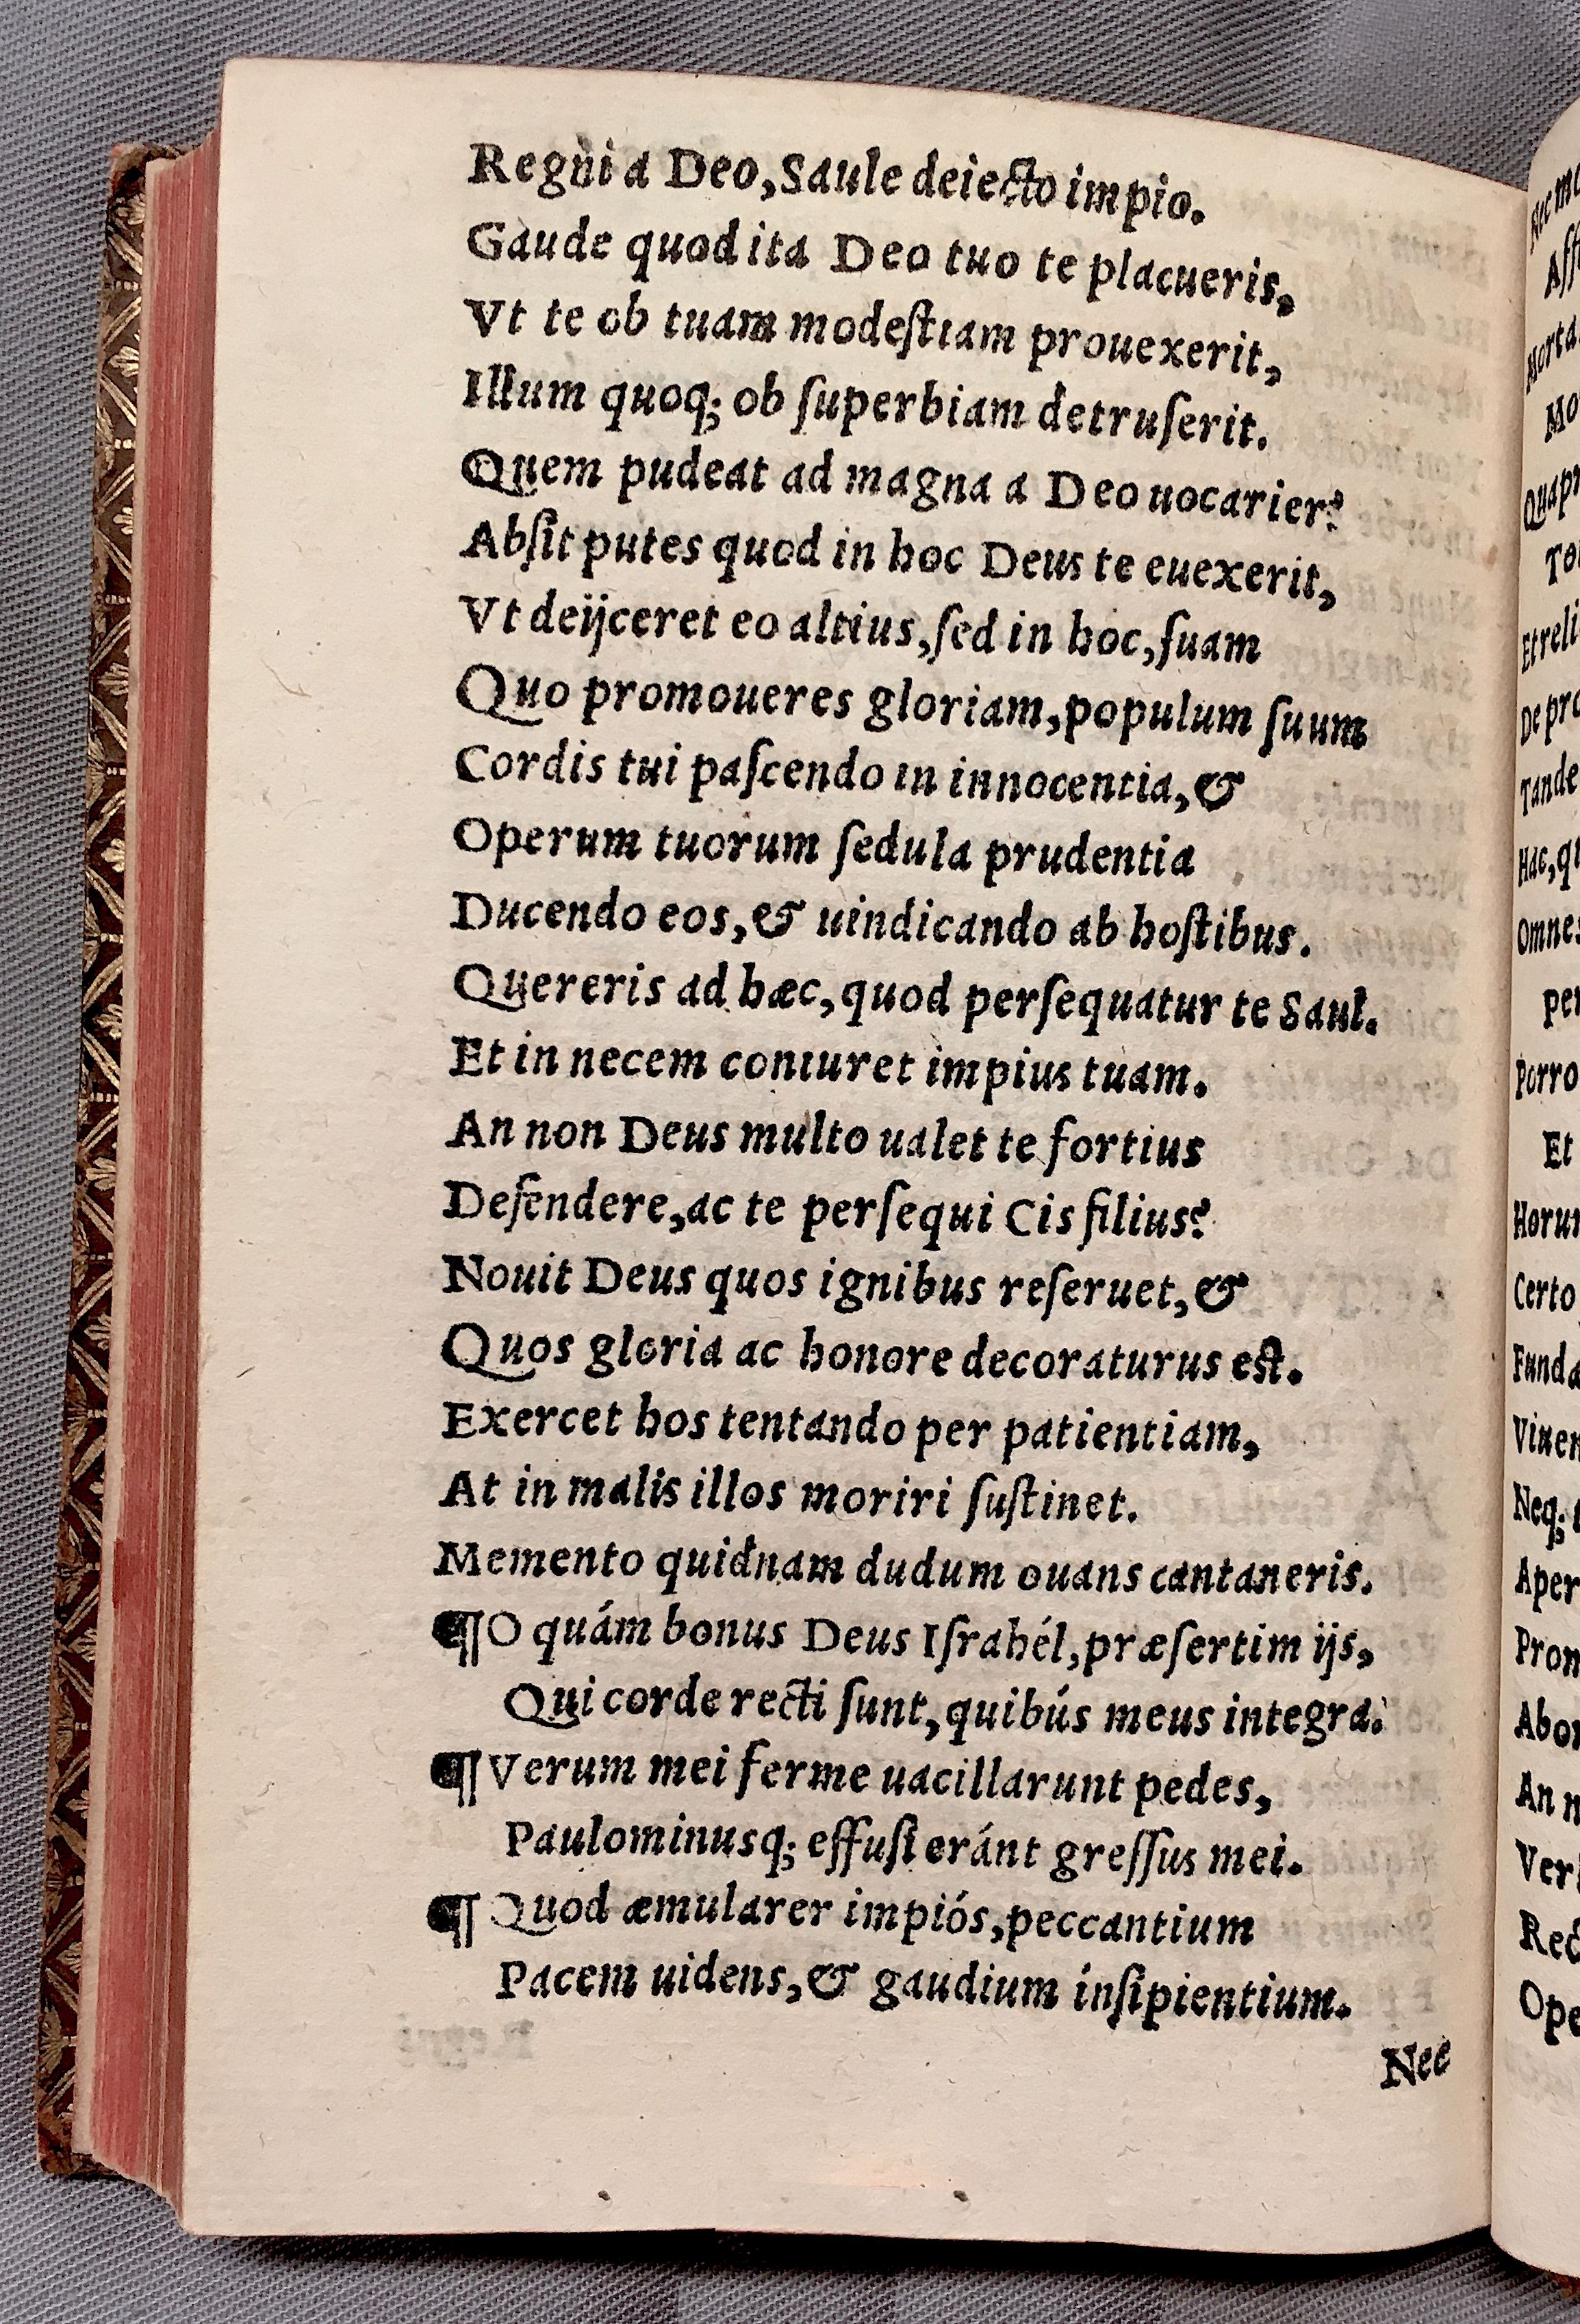 Regni a Deo, Saule deiecto impio.
Gaude quod ita Deo tuo te placueris,
Vt te ob tuam modeſtiam prouexerit,
Illum quoq; ob ſuperbiam detruſerit.
Quem pudeat ad magna a Deo uocarier?
Abſit putes quod in hoc Deus te euexerit,
Vt deijceret eo altius, ſed in hoc, ſuam
Quo promoueres gloriam, populum ſuum
Cordis tui paſcendo in innocentia, &
Operum tuorum ſedula prudentia
Ducendo eos, & uindicando ab hoſtibus.
Quereris ad hæc, quod perſequatur te Saul.
Et in necem coniuret impius tuam.
An non Deus multo ualet te fortius
Defendere, ac te perſequi Cis filius?
Nouit Deus quos ignibus reſeruet, &
Quos gloria ac honore decoraturus eſt.
Exercet hos tentando per patientiam,
At in malis illos moriri ſuſtinet.
Memento quidnam dudum ouans cantaueris.
¶ O quám bonus Deus Iſrahél, præſertim ijs,
Qui corde recti ſunt, quibús meus integra.
¶ Verum mei ferme uacillarunt pedes,
Paulominusq; effuſi eránt greſſus mei.
¶ Quod æmularer impiós, peccantium
Pacem uidens, & gaudium ínſipientium.
Nec
Nec
Aff
Morta
Mo
Quapr
To
Et reli
De pro
Tande
Hac, qu
Omnes
per
Porro
Et
Horum
Certo
Funda
Viuen
Neq;
Aper
Pron
Abor
An n
Ver
Rec
Ope